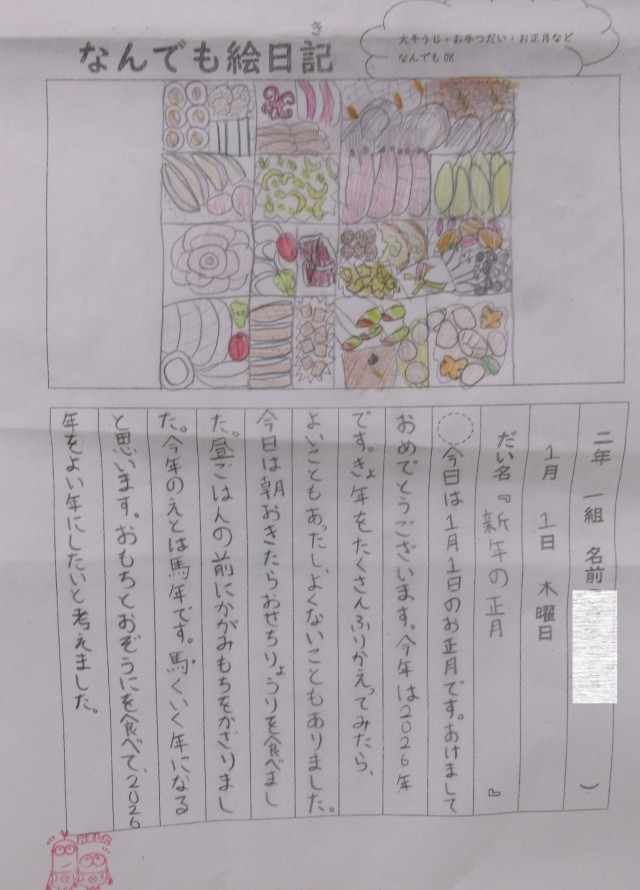 なんでも絵日記
き
大そうじ・お手つだい・お正月など
なんでもOK
二年 一組 名前（ ）
1月 1日 木曜日
だい名『新年の正月 』
今日は1月1日のお正月です。あけまして
おめでとうございます。今年は2026年
です。きょ年をたくさんふりかえってみたら、
よいこともあったし、よくないこともありました。
今日は朝おきたらおせちりょうりを食べまし
た。昼ごはんの前にかがみもちをかざりまし
た。今年のえとは馬年です。馬くいく年になる
と思います。おもちとおぞうにを食べて、2026
年をよい年にしたいと考えました。